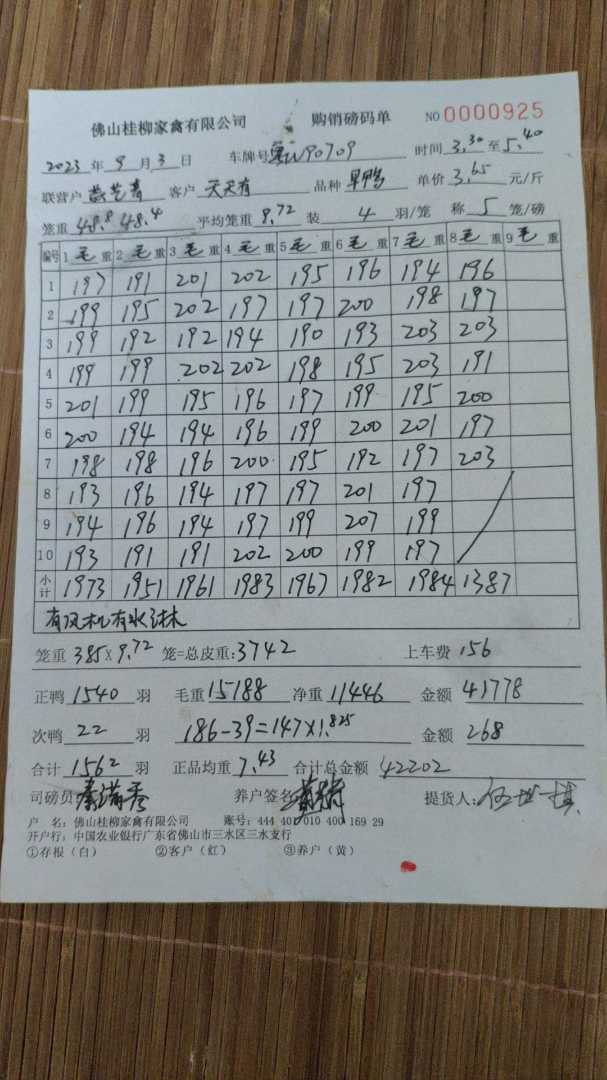 佛山桂柳家禽有限公司 购销磅码单 NO 0000925
2023 年 9 月 3 日 车牌号 90709 时间 3.30 至 5.40
联营户 客户 天天有 品种 旱鸭 单价 3.65 元/斤
笼重 48.8 48.4 平均笼重 9.72 装 4 羽/笼 称 5 笼/磅
编号 1 毛 重 2 毛 重 3 毛 重 4 毛 重 5 毛 重 6 毛 重 7 毛 重 8 毛 重 9 毛 重
1 197 191 201 202 195 196 194 196
2 199 195 202 197 197 200 198 197
3 199 192 192 194 190 193 203 203
4 199 199 202 202 198 195 203 191
5 201 199 195 196 197 199 195 200
6 200 194 194 196 199 200 201 197
7 198 198 196 200 195 192 197 203
8 193 196 194 197 197 201 197
9 194 196 194 197 199 207 199
10 193 191 191 202 200 199 197
小计 1973 1951 1961 1983 1967 1982 1984 1387
有风机有水淋
笼重 385×9.72 笼=总皮重:3742 上车费 156
正鸭 1540 羽 毛重 15188 净重 11446 金额 41778
次鸭 22 羽 186-39=147×1.825 金额 268
合计 1562 羽 正品均重 7.43 合计总金额 42202
司磅员 养户签名 提货人:
户 名: 佛山桂柳家禽有限公司 账号: 444 401 010 400 169 29
开户行: 中国农业银行广东省佛山市三水区三水支行
①存根(白) ②客户(红) ③养户(黄)